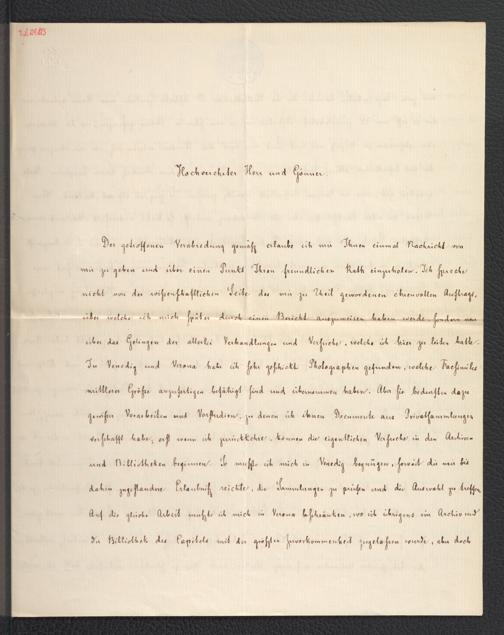 Hochverehrter Herr und Gönner.
Der getroffenen Verabredung gemäß erlaube ich mir Ihnen einmal Nachricht von
mir zu geben und über einen Punkt Ihren freundlichen Rath einzuholen. Ich spreche
nicht von der wissenschaftlichen Seite des mir zu Theil gewordenen ehrenvollen Auftrags,
über welche ich mich später durch einen Bericht auszuweisen haben werde, sondern nur
über das Gelingen der allerlei Verhandlungen und Versuche, welche ich hier zu leiten hatte.
In Venedig und Verona habe ich sehr geschickte Photographen gefunden, welche Facsimiles
mittlerer Größe anzufertigen befähigt sind und übernommen haben. Aber sie bedurften dazu
gewisser Vorarbeiten und Vorstudien, zu denen ich ihnen Documente aus Privatsammlungen
verschafft habe, erst wenn ich zurückkehre, können die eigentlichen Versuche in den Archiven
und Bibliotheken beginnen. So mußte ich mich in Venedig begnügen, soweit die mir bis
dahin zugestandene Erlaubniß reichte, die Sammlungen zu prüfen und die Auswahl zu treffen.
Auf die gleiche Arbeit mußte ich mich in Verona beschränken, wo ich übrigens im Archiv und
der Bibliothek des Capitels mit der größten Zuvorkommenheit zugelassen wurde, aber doch